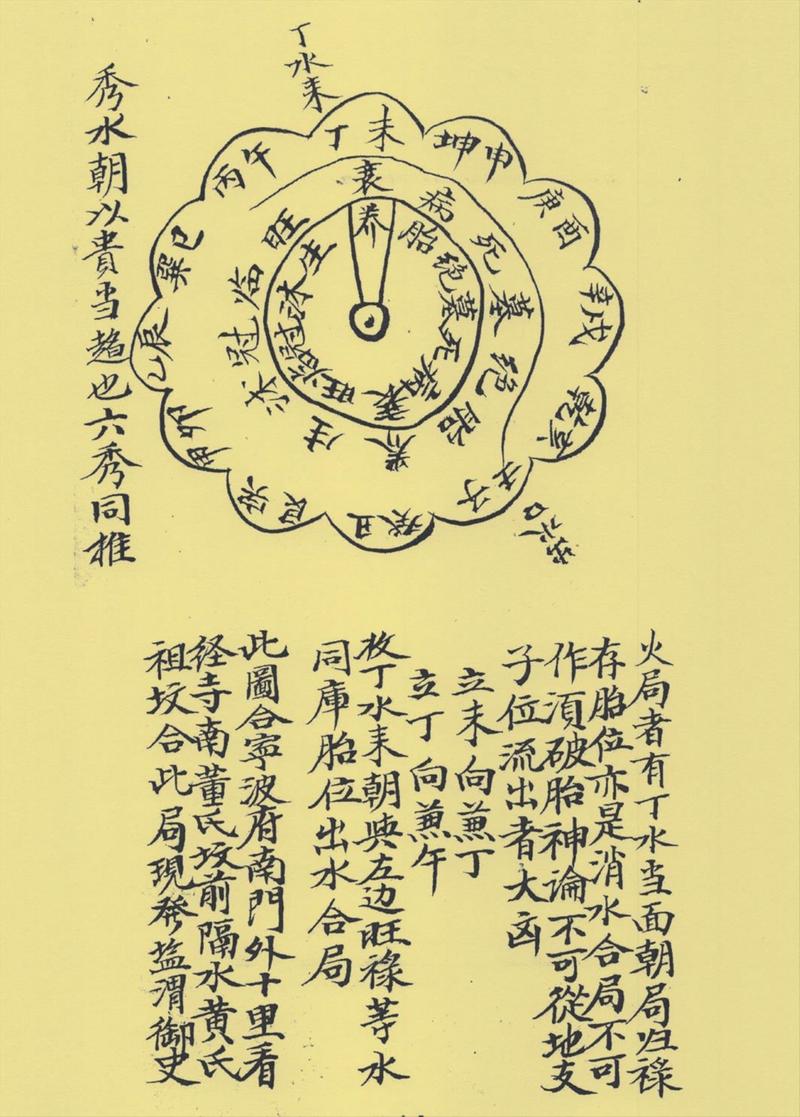 丁水来
秀水朝以貴当趋也六秀同推
丁未
坤申
庚酉
辛戌
乾亥
壬子
癸丑
艮寅
甲卯
乙辰
巽巳
丙午
衰病死墓绝胎养生沐冠临旺
养胎绝墓死病衰旺临冠沐生
水口
火局者有丁水当面朝局归祿
存胎位亦是消水合局不可
作須破胎神論不可從地支
子位流出者大凶
立未向兼丁
立丁向兼午
枚丁水来朝與左边旺祿等水
同庫胎位出水合局
此圖合寧波府南門外十里看
経寺南董氏坟前隔水黄氏
祖坟合此局現發塩渭御史